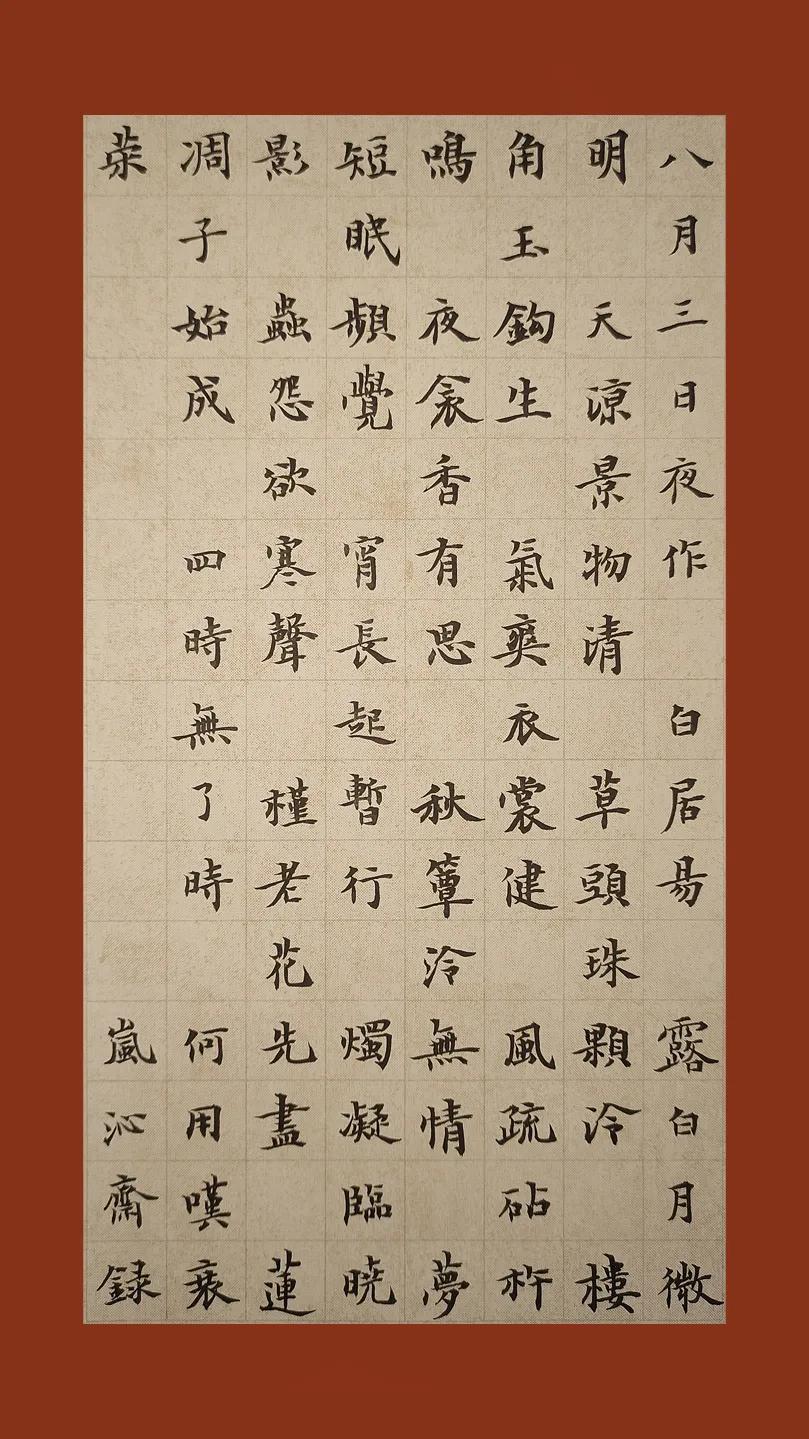 八月三日夜作 白居易 露白月微
明 天涼景物清 草頭珠顆冷 樓
角玉鈎生 氣爽衣裳健 風疏砧杵
鳴 夜衾香有思 秋簟冷無情 夢
短眠頻覺 宵長起暫行 燭凝臨曉
影 蟲怨欲寒聲 槿老花先盡 蓮
凋子始成 四時無了時 何用嘆衰
荣 嵐沁齋録